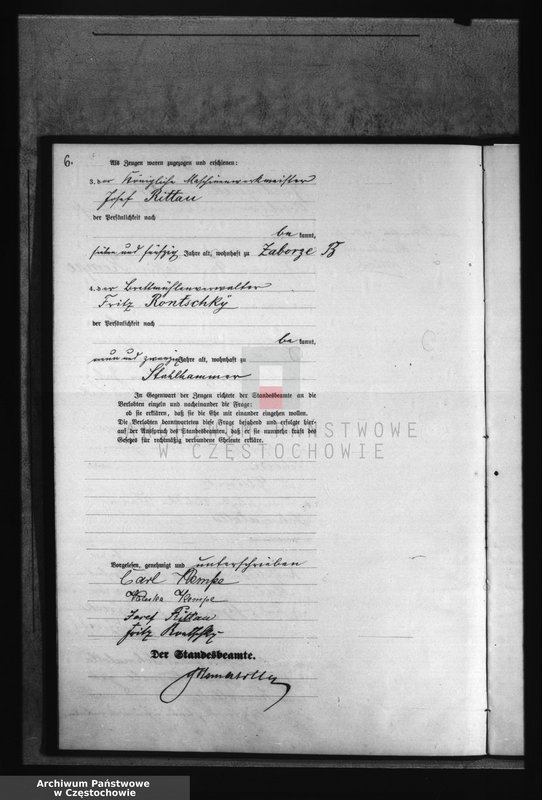 6.
Als Zeugen waren zugezogen und erschienen:
3. der Königliche Maschinenwerkmeister
Josef Rittau
der Persönlichkeit nach
be kannt,
fünfzig Jahre alt, wohnhaft zu Zaborze B
4. der Brettmühlenverwalter
Fritz Rontschky
der Persönlichkeit nach
be kannt,
neun und zwanzig Jahre alt, wohnhaft zu
Stahlhammer
In Gegenwart der Zeugen richtete der Standesbeamte an die
Verlobten einzeln und nacheinander die Frage:
ob sie erklären, daß sie die Ehe mit einander eingehen wollen.
Die Verlobten beantworteten diese Frage bejahend und erfolgte hier-
auf der Ausspruch des Standesbeamten, daß er sie nunmehr kraft des
Gesetzes für rechtmäßig verbundene Eheleute erkläre.
STWOWE
W CZĘSTOCHOWIE
Vorgelesen, genehmigt und unterschrieben
Carl Kempe
Kempe
Josef Rittau
Fritz Rontschky
Der Standesbeamte.
Archiwum Państwowe
w Częstochowie